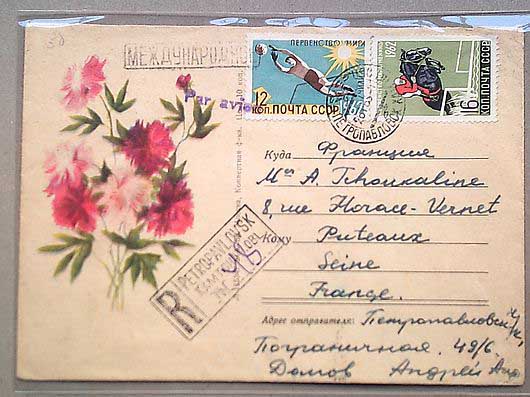 МЕЖДУНАРОДНОЕ
Par avion
ПЕРВЕНСТВО МИРА
12 КОП. ПОЧТА СССР 1962
1962
16 КОП. ПОЧТА СССР
ПЕТРОПАВЛОВСК
Куда Франция
Mrs A. Tchoukaline
8, rue Horace-Vernet
Кому Puteaux
Seine
France.
R PETROPAVLOVSK
48
Адрес отправителя: Петропавловск
Пограничная. 49/6.
Домов Андрей